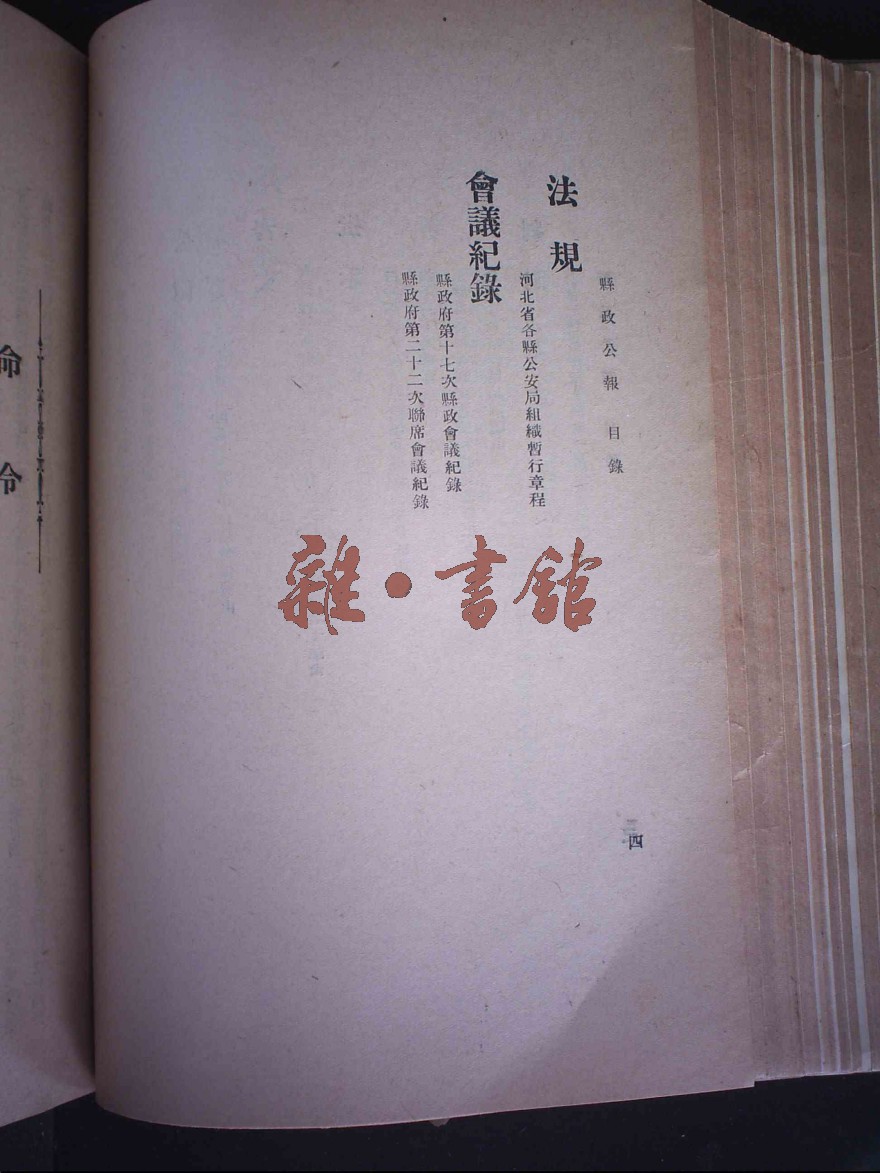 縣政公報 目錄
法規
河北省各縣公安局組織暫行章程
會議紀錄
縣政府第十七次縣政會議紀錄
縣政府第二十二次聯席會議紀錄
四
雜·書館
命令